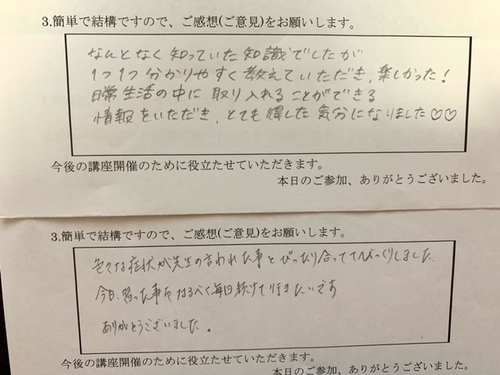 3.簡単で結構ですので、ご感想(ご意見)をお願いします。
なんとなく知っていた知識でしたが
1つ1つ分かりやすく教えていただき、楽しかった!
日常生活の中に取り入れることができる
情報をいただき、とても得した気分になりました♡♡
今後の講座開催のために役立たせていただきます。
本日のご参加、ありがとうございました。
3.簡単で結構ですので、ご感想(ご意見)をお願いします。
色々な症状が先生の言われた事とぴったり合っててびっくりしました。
今日、習った事をなるべく毎日続けて行きたいです
ありがとうございました。
今後の講座開催のために役立たせていただきます。
本日のご参加、ありがとうございました。